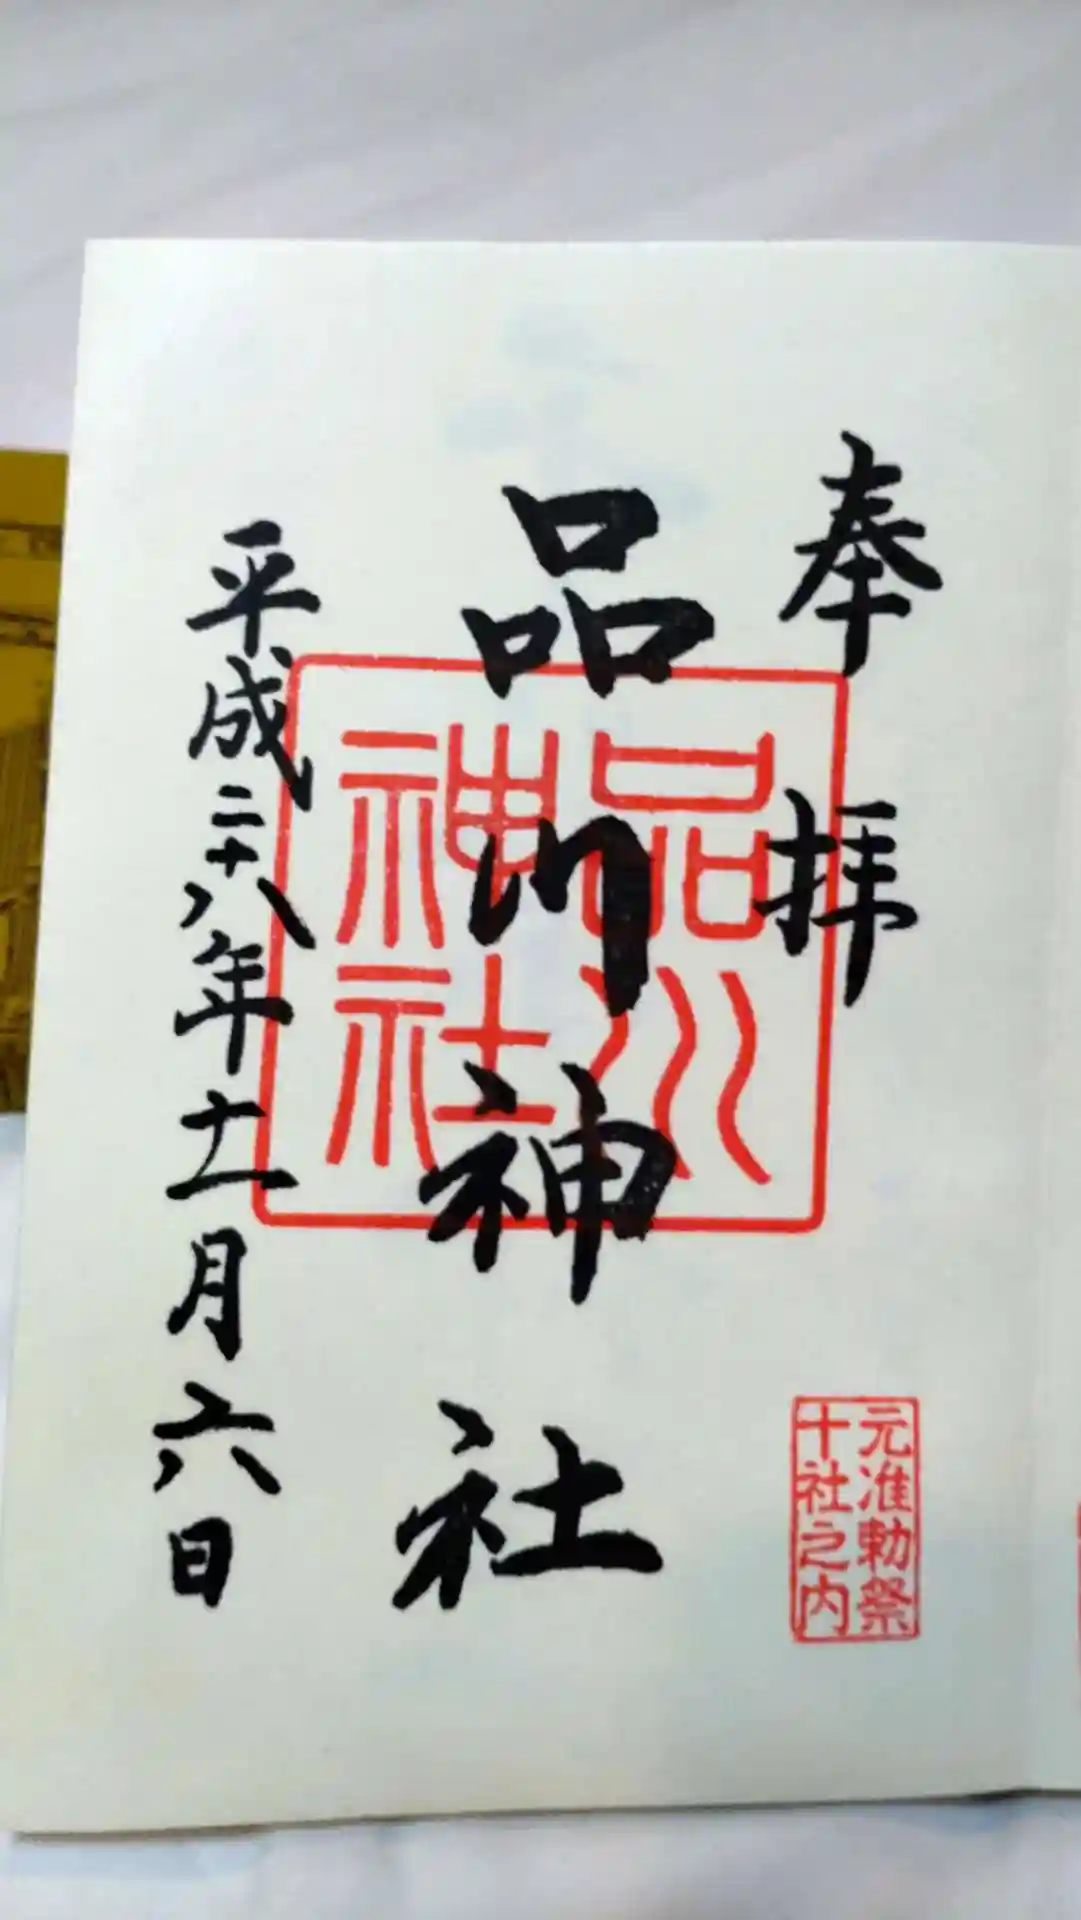 奉拝
品川神社
品川
神社
平成二十八年十一月六日
元准勅祭
十社之内